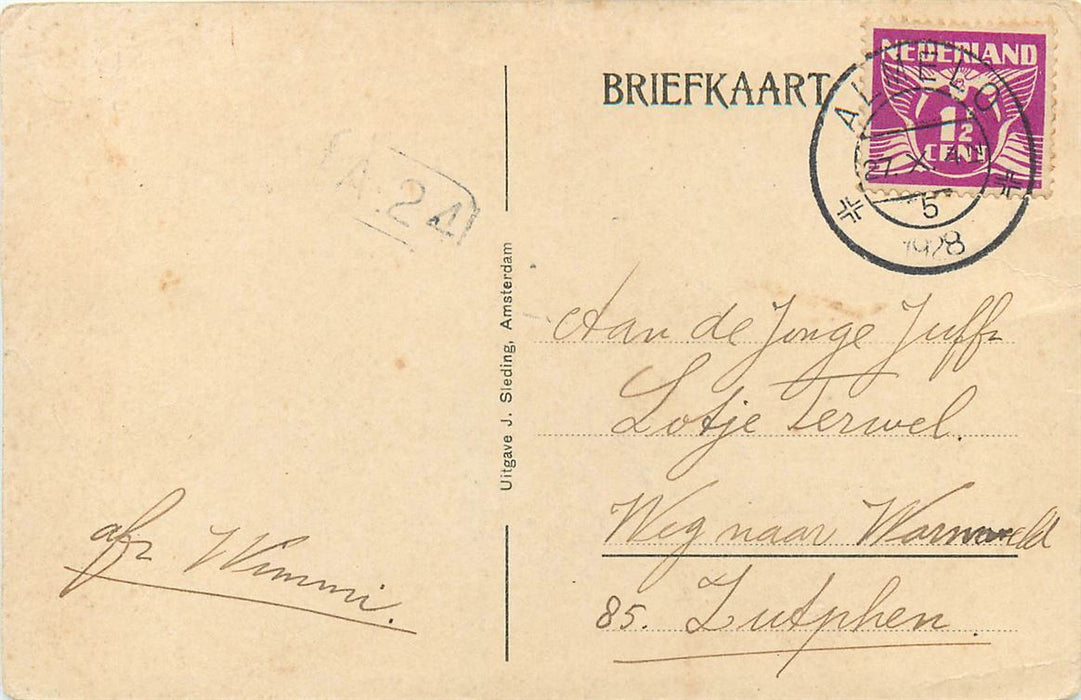 BRIEFKAART
NEDERLAND
1½
CENT
ALMELO
27.X. 4N
5
1928
A:24
Uitgave J. Sleding, Amsterdam
Aan de Jonge Juffr
Lotje Terwel.
Weg naar Warnsveld
85. Zutphen.
afz Wimmi.